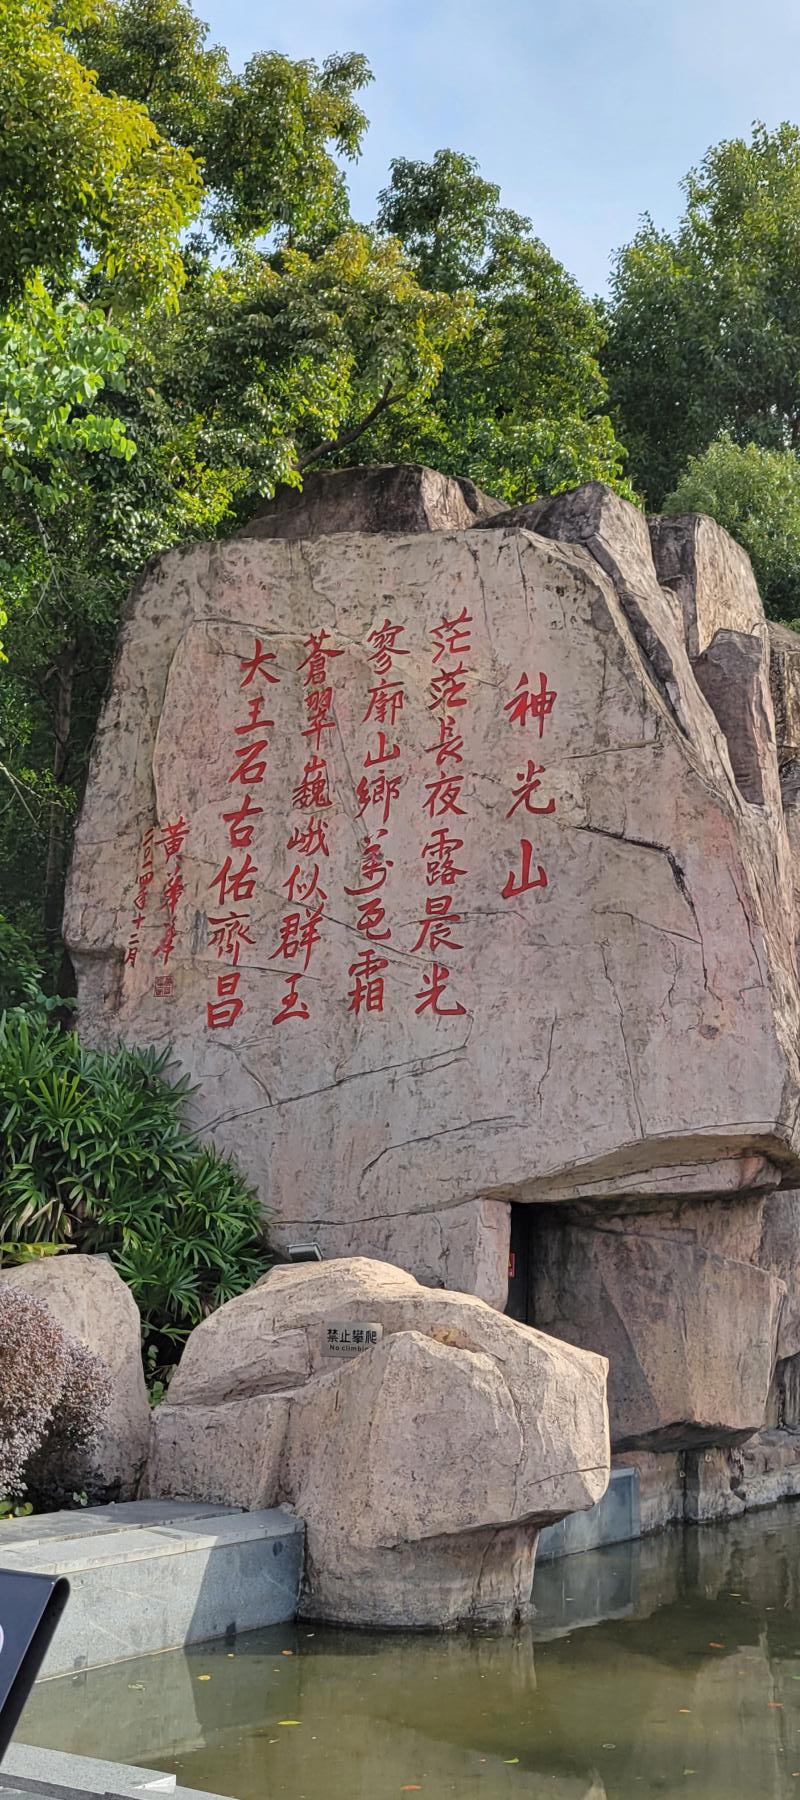 神光山
茫茫長夜露晨光
寥廓山鄉萬色霜
蒼翠巍峨似群玉
大王石古佑齊昌
黃華華
二〇一四年十二月
禁止攀爬
No climbing